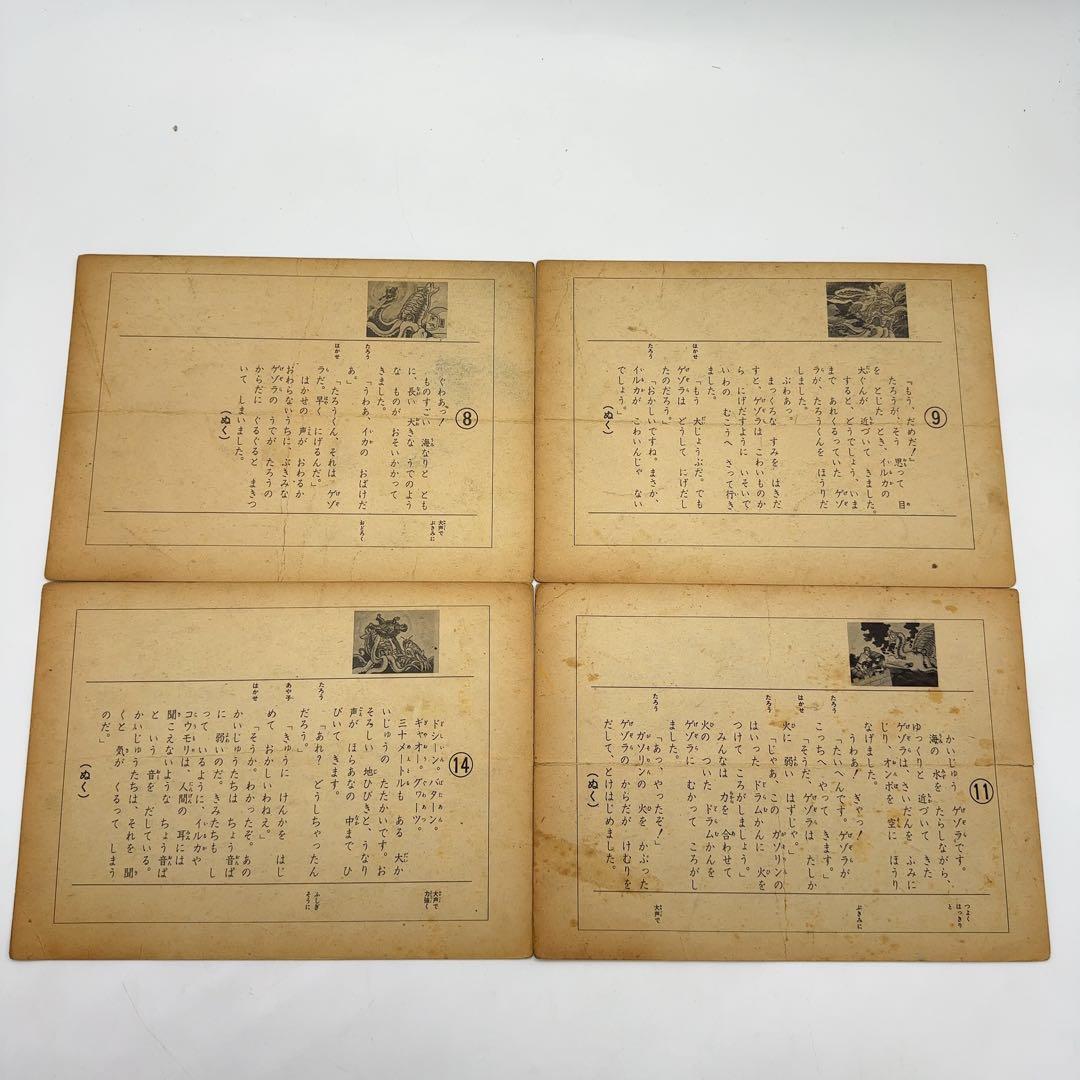 ⑧
ぐわあっ！
ものすごい 海なりと とも
に 長い 大きな うでのよう
な ものが おそいかかって
きました。
たろう
「うわあ、イカの おばけだ
あ。」
はかせ
「たろうくん、それは ゲゾ
ラだ。早く にげるんだ。」
はかせの 声が おわるか
おわらないうちに、ぶきみな
ゲゾラの うでが たろうの
からだに ぐるぐると まきつ
いて しまいました。
（ぬく）
大声で
ぶきみに
おどろく
⑨
「もう、だめだ！」
たろうが、そう 思って 目
を とじた とき、イルカの
大ぐんが 近づいて きました。
すると、どうでしょう、いま
まで あれくるっていた ゲゾ
ラが、たろうくんを ほうりだ
しました。
ぶわあっ。
まっくろな すみを はきだ
すと、ゲゾラは こわいものか
ら にげだすように いそいで、
いわの むこうへ さって行き
ました。
はかせ
「もう 大じょうぶだ。でも
ゲゾラは どうして にげだし
たのだろう。」
たろう
「おかしいですね。まさか、
イルカが こわいんじゃ ない
でしょう。」
（ぬく）
⑭
ドシーン。バターン。
ギャオー。グワーッ。
三十メートルも ある 大か
いじゅうの たたかいです。お
そろしい 地ひびきと、うなり
声が ほらあなの 中まで ひ
びいて、きます。
たろう
「あれ？ どうしちゃったん
だろう。」
あや子
「きゅうに けんかを はじ
めて おかしいわねえ。」
はかせ
「そうか。わかったぞ。あの
かいじゅうたちは ちょう音ぱ
に 弱いのだ。きみたちも し
って いるように、イルカや
コウモリは、人間の 耳には
聞こえないような ちょう音ぱ
と いう 音を だしている。
かいじゅうたちは、それを 聞
くと 気が くるって しまう
のだ。」
（ぬく）
大声で
力強く
ふしぎ
そうに
⑪
かいじゅう ゲゾラです。
海の 水を たらしながら、
ゆっくりと 近づいて きた
ゲゾラは、さいだんを ふみに
じり、オンボを 空に ほうり
なげました。
うわぁ！ ぎゃっ！
たろう
「たいへんです。ゲゾラが
こっちへ やって きます。」
はかせ
「そうだ、ゲゾラは たしか
火に 弱い はずじゃ。」
たろう
「じゃあ、この ガソリンの
はいった ドラムかんに 火を
つけて ころがしましょう。」
みんなは 力を 合わせて
火の ついた ドラムかんを
ゲゾラに むかって ころがし
ました。
たろう
「あっ、やったぞ！」
ガソリンの 火を かぶった
ゲゾラの からだが けむりを
だして、とけはじめました。
（ぬく）
つよく
はっきり
と
ぶきみに
大声で